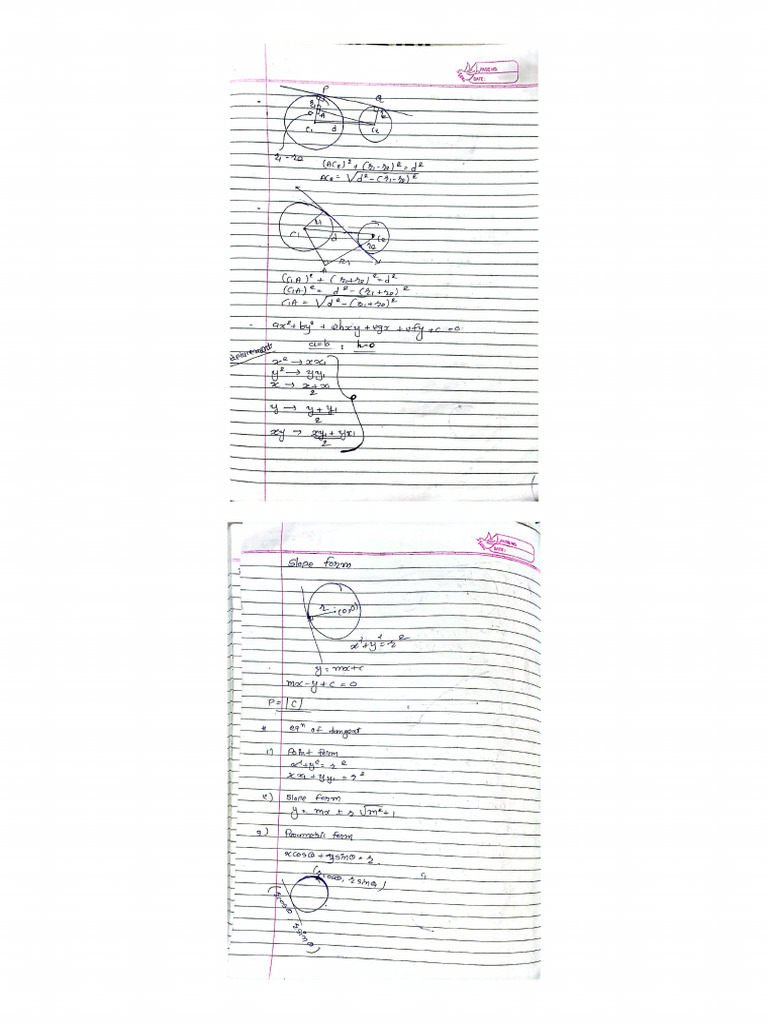 PAGE NO.
DATE:
P
Q
A
C1
d
C2
r1 - r2
(AC2)² + (r1 - r2)² = d²
AC2 = √d² - (r1 - r2)²
r1
C1
d
C2
r2
A
(C1A)² + (r1 + r2)² = d²
(C1A)² = d² - (r1 + r2)²
C1A = √d² - (r1 + r2)²
ax² + by² + 2hxy + 2gx + 2fy + c = 0
a=b ; h=0
x² → xx1
y² → yy1
x → x + x1 / 2
y → y + y1 / 2
xy → xy1 + yx1 / 2
PAGE NO.
DATE:
Slope form
r (0,0)
x² + y² = r²
y = mx + c
mx - y + c = 0
P = |C|
* eqn of tangent
1) Point form
x² + y² = r²
xx1 + yy1 = r²
2) Slope form
y = mx ± r √m² + 1
3) Parametric form
xcosθ + ysinθ = r
(rcosθ, rsinθ)
(rcosθ, rsinθ)